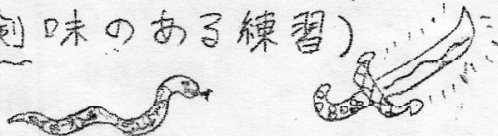 剣味のある練習)